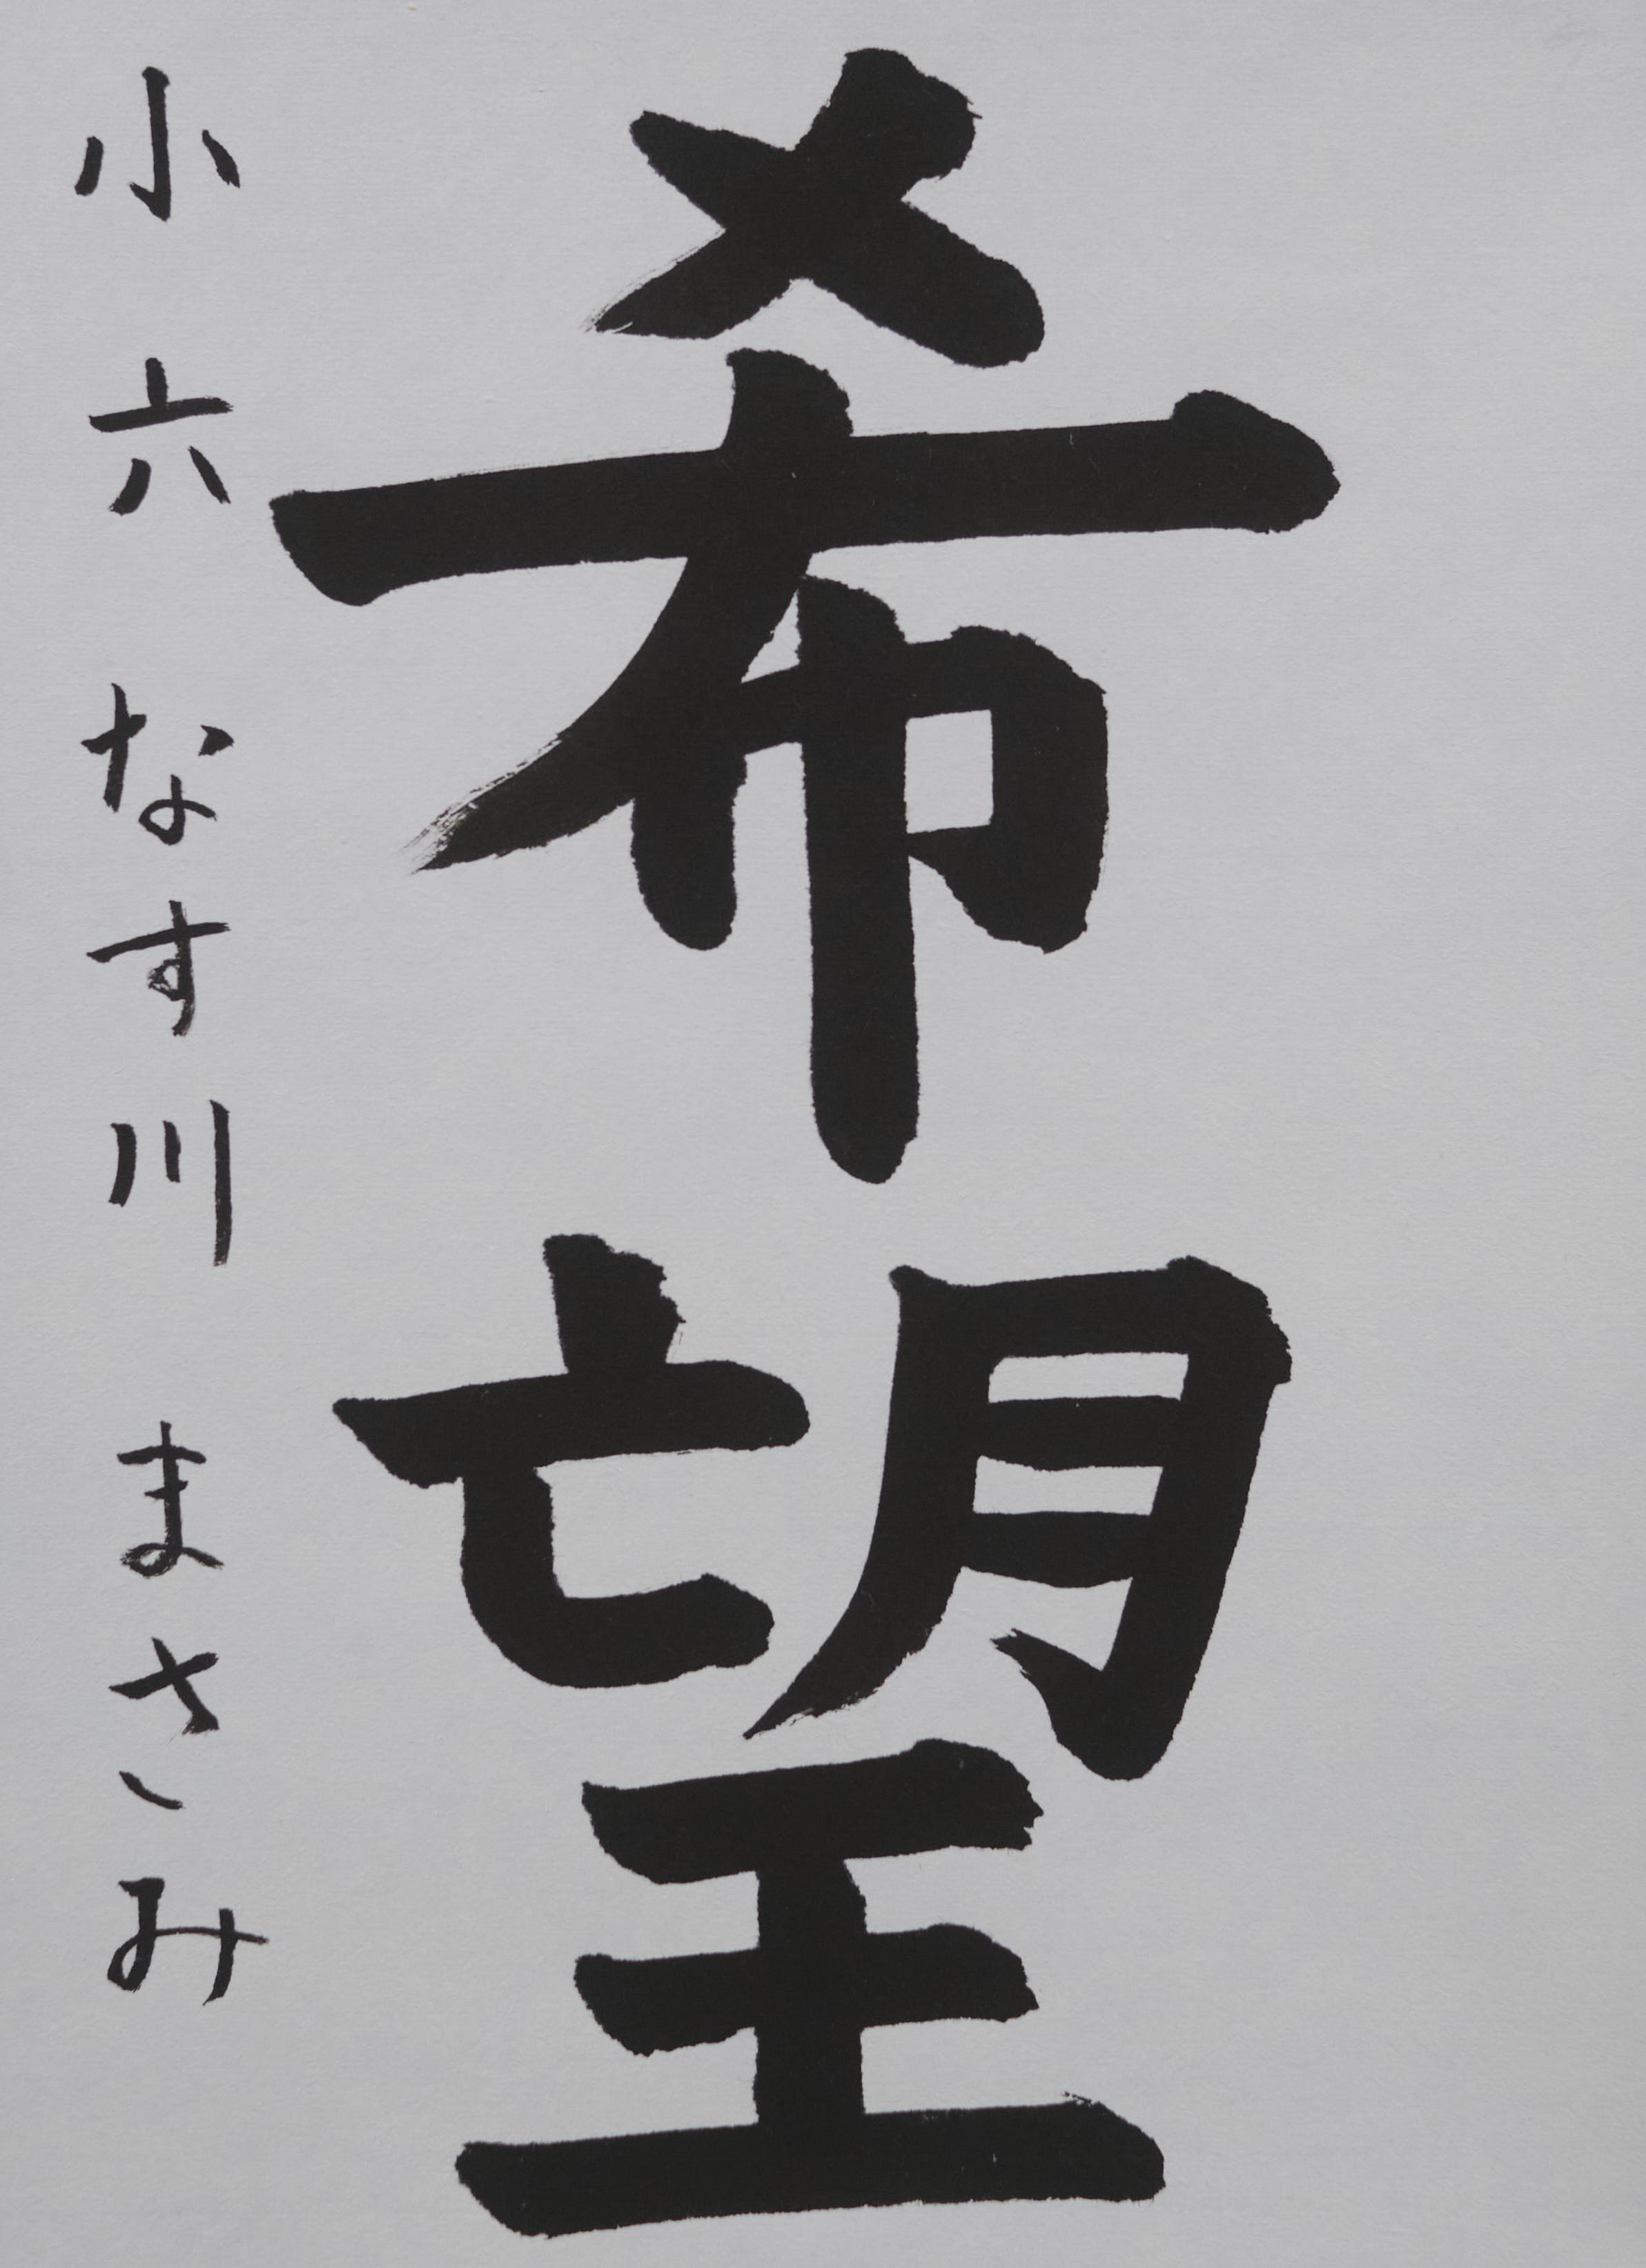 希望
小六 なす川 まさみ